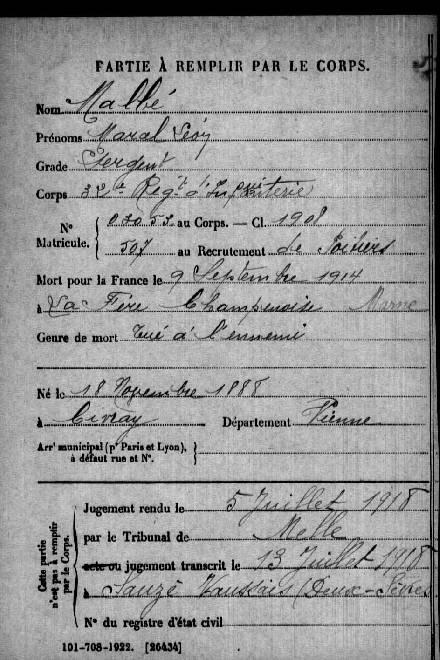 PARTIE À REMPLIR PAR LE CORPS.
Nom Malbé
Prénoms Marcel Léon
Grade Sergent
Corps 32e Regt d'Infanterie
N° Matricule. 03053 au Corps. — Cl. 1908
507 au Recrutement de Poitiers
Mort pour la France le 9 Septembre 1914
à La Fère Champenoise Marne
Genre de mort Tué à l'ennemi
Né le 18 Novembre 1888
à Civray Département Vienne
Arrt municipal (pr Paris et Lyon),
à défaut rue et N°.
Cette partie n'est pas à remplir par le Corps.
Jugement rendu le 5 Juillet 1918
par le Tribunal de Melle
acte ou jugement transcrit le 13 Juillet 1918
à Sauzé Vaussais (Deux-Sèvres
N° du registre d'état civil
101-708-1922. [26434]